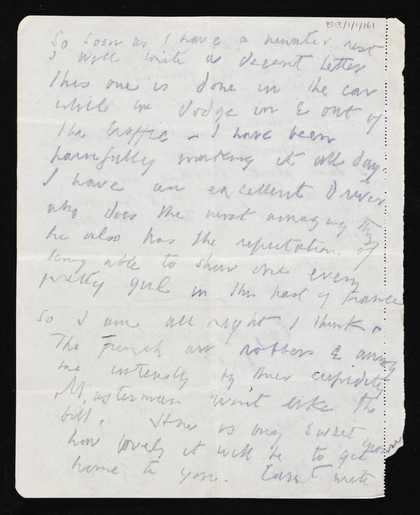 So soon as I have a minutes rest
I will write a decent letter
This one is done in the car
while we dodge in & out of
the traffic - I have been
painfully working it all day.
I have an excellent Driver
who does the most amazing things
he also has the reputation of
being able to show one every
pretty girl in this part of France
So I am all right I think.
The French are robbers & annoy
me intensely by their cupidity
Masterman won't like the
bill. How is my sweet
how lovely it will be to get
home to you. Can't write